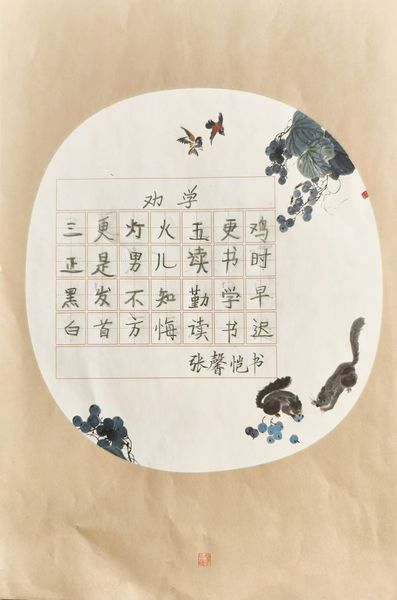 劝学
三更灯火五更鸡
正是男儿读书时
黑发不知勤学早
白首方悔读书迟
张馨恺书